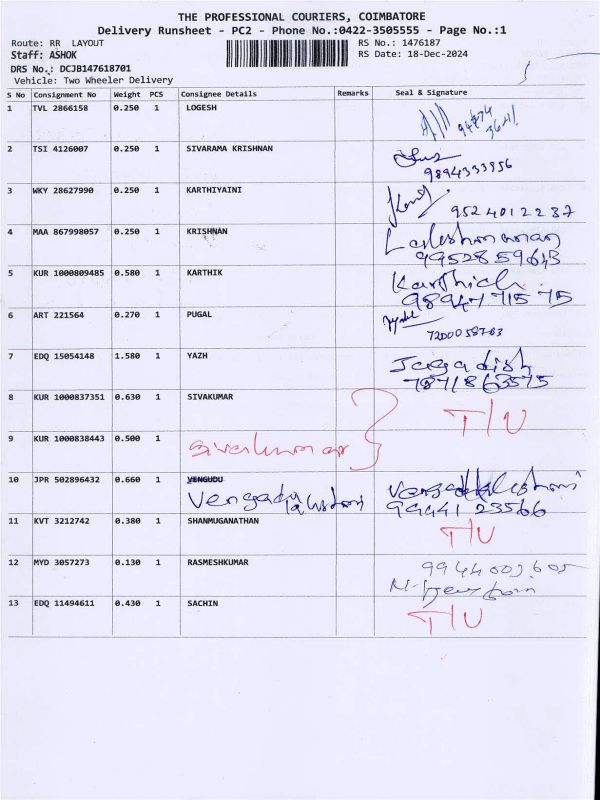 THE PROFESSIONAL COURIERS, COIMBATORE
Delivery Runsheet - PC2 - Phone No.:0422-3505555 - Page No.:1
Route: RR LAYOUT
RS No.: 1476187
Staff: ASHOK
RS Date: 18-Dec-2024
DRS No.: DCJB147618701
Vehicle: Two Wheeler Delivery
S No Consignment No Weight PCS Consignee Details Remarks Seal & Signature
1 TVL 2866158 0.250 1 LOGESH
2 TSI 4126007 0.250 1 SIVARAMA KRISHNAN
9894333956
3 WKY 28627990 0.250 1 KARTHIYAINI
9524012237
4 MAA 867998057 0.250 1 KRISHNAN
5 KUR 1000809485 0.580 1 KARTHIK Karthick
98947 715 75
6 ART 221564 0.270 1 PUGAL
7 EDQ 15054148 1.580 1 YAZH Jagadish
7871863575
8 KUR 1000837351 0.630 1 SIVAKUMAR T/U
9 KUR 1000838443 0.500 1 Sivakumar
10 JPR 502896432 0.660 1 VENGUDU
99441 23566
11 KVT 3212742 0.380 1 SHANMUGANATHAN T/U
12 MYD 3057273 0.130 1 RASMESHKUMAR
13 EDQ 11494611 0.430 1 SACHIN T/U